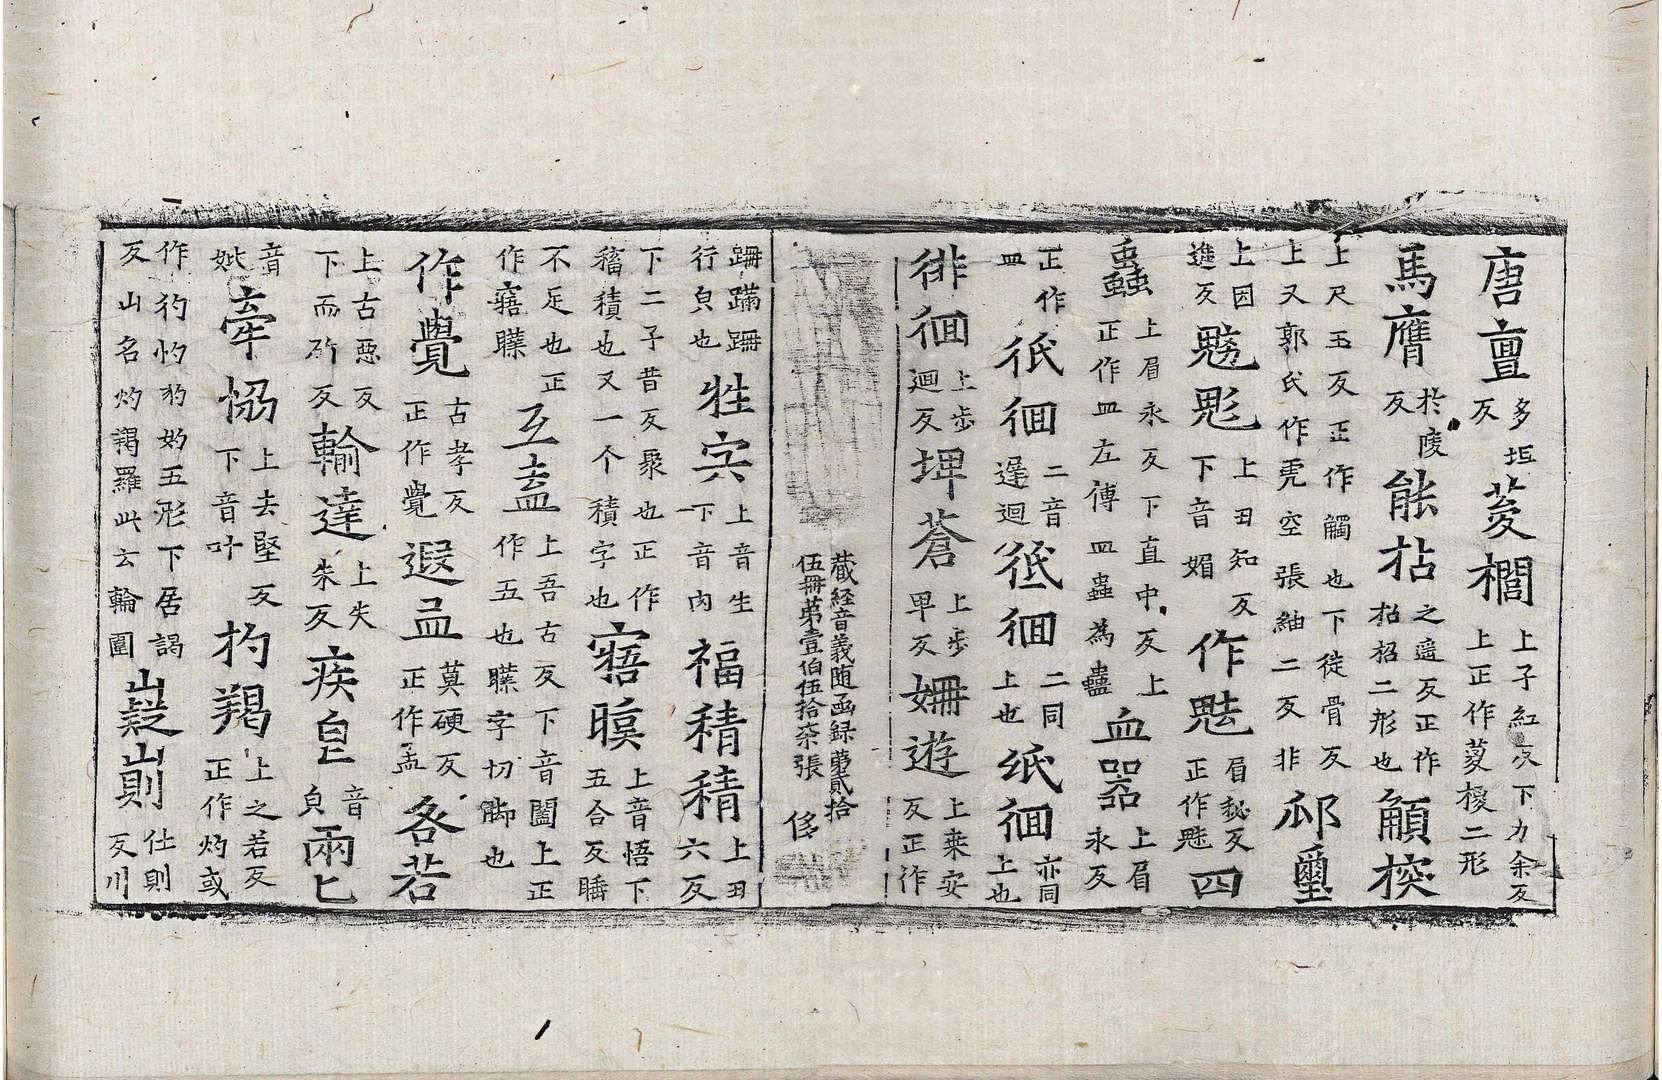 唐亶多坦反菱櫚上子紅反下力余反上正作㚇椶二形
馬膺於陵反能拈之遥反正作招招二形也觸揬
上尺玉反正作觸也下徒骨反上又郭氏作虎空張紬二反非邲璽
上因進反魑魅上丑知反下音媚作魅眉秘反正作魅四
蝱上眉永反下直中反上正作皿左傳皿蟲為蠱血器上眉永反
正作皿 徊二音遅迴 徊二同上也 徊亦同上也
徘徊上步迴反埤蒼上步卑反姍遊上桒安反正作
藏経音義随函録苐貳拾伍冊苐壹伯伍拾柒張
跚蹣跚行皃也牲宍上音生下音肉福稸稸上丑六反
下二子昔反聚也正作稸積也又一个積字也寤瞑上音悟下五合反睡
不足也正作寤䁾互盍上吾古反下音闔上正作五也䁾字切脚也
作覺古孝反正作覺遐孟莫硬反正作孟各若
上古惡反下而斫反輸達上失朱反疾皃音皃兩匕
音妣牽恊上去堅反下音叶杓羯上之若反正作灼或
作犳㣿豹妁五形下居謁反山名灼謁羅此云輪圍嶷崱仕則反川